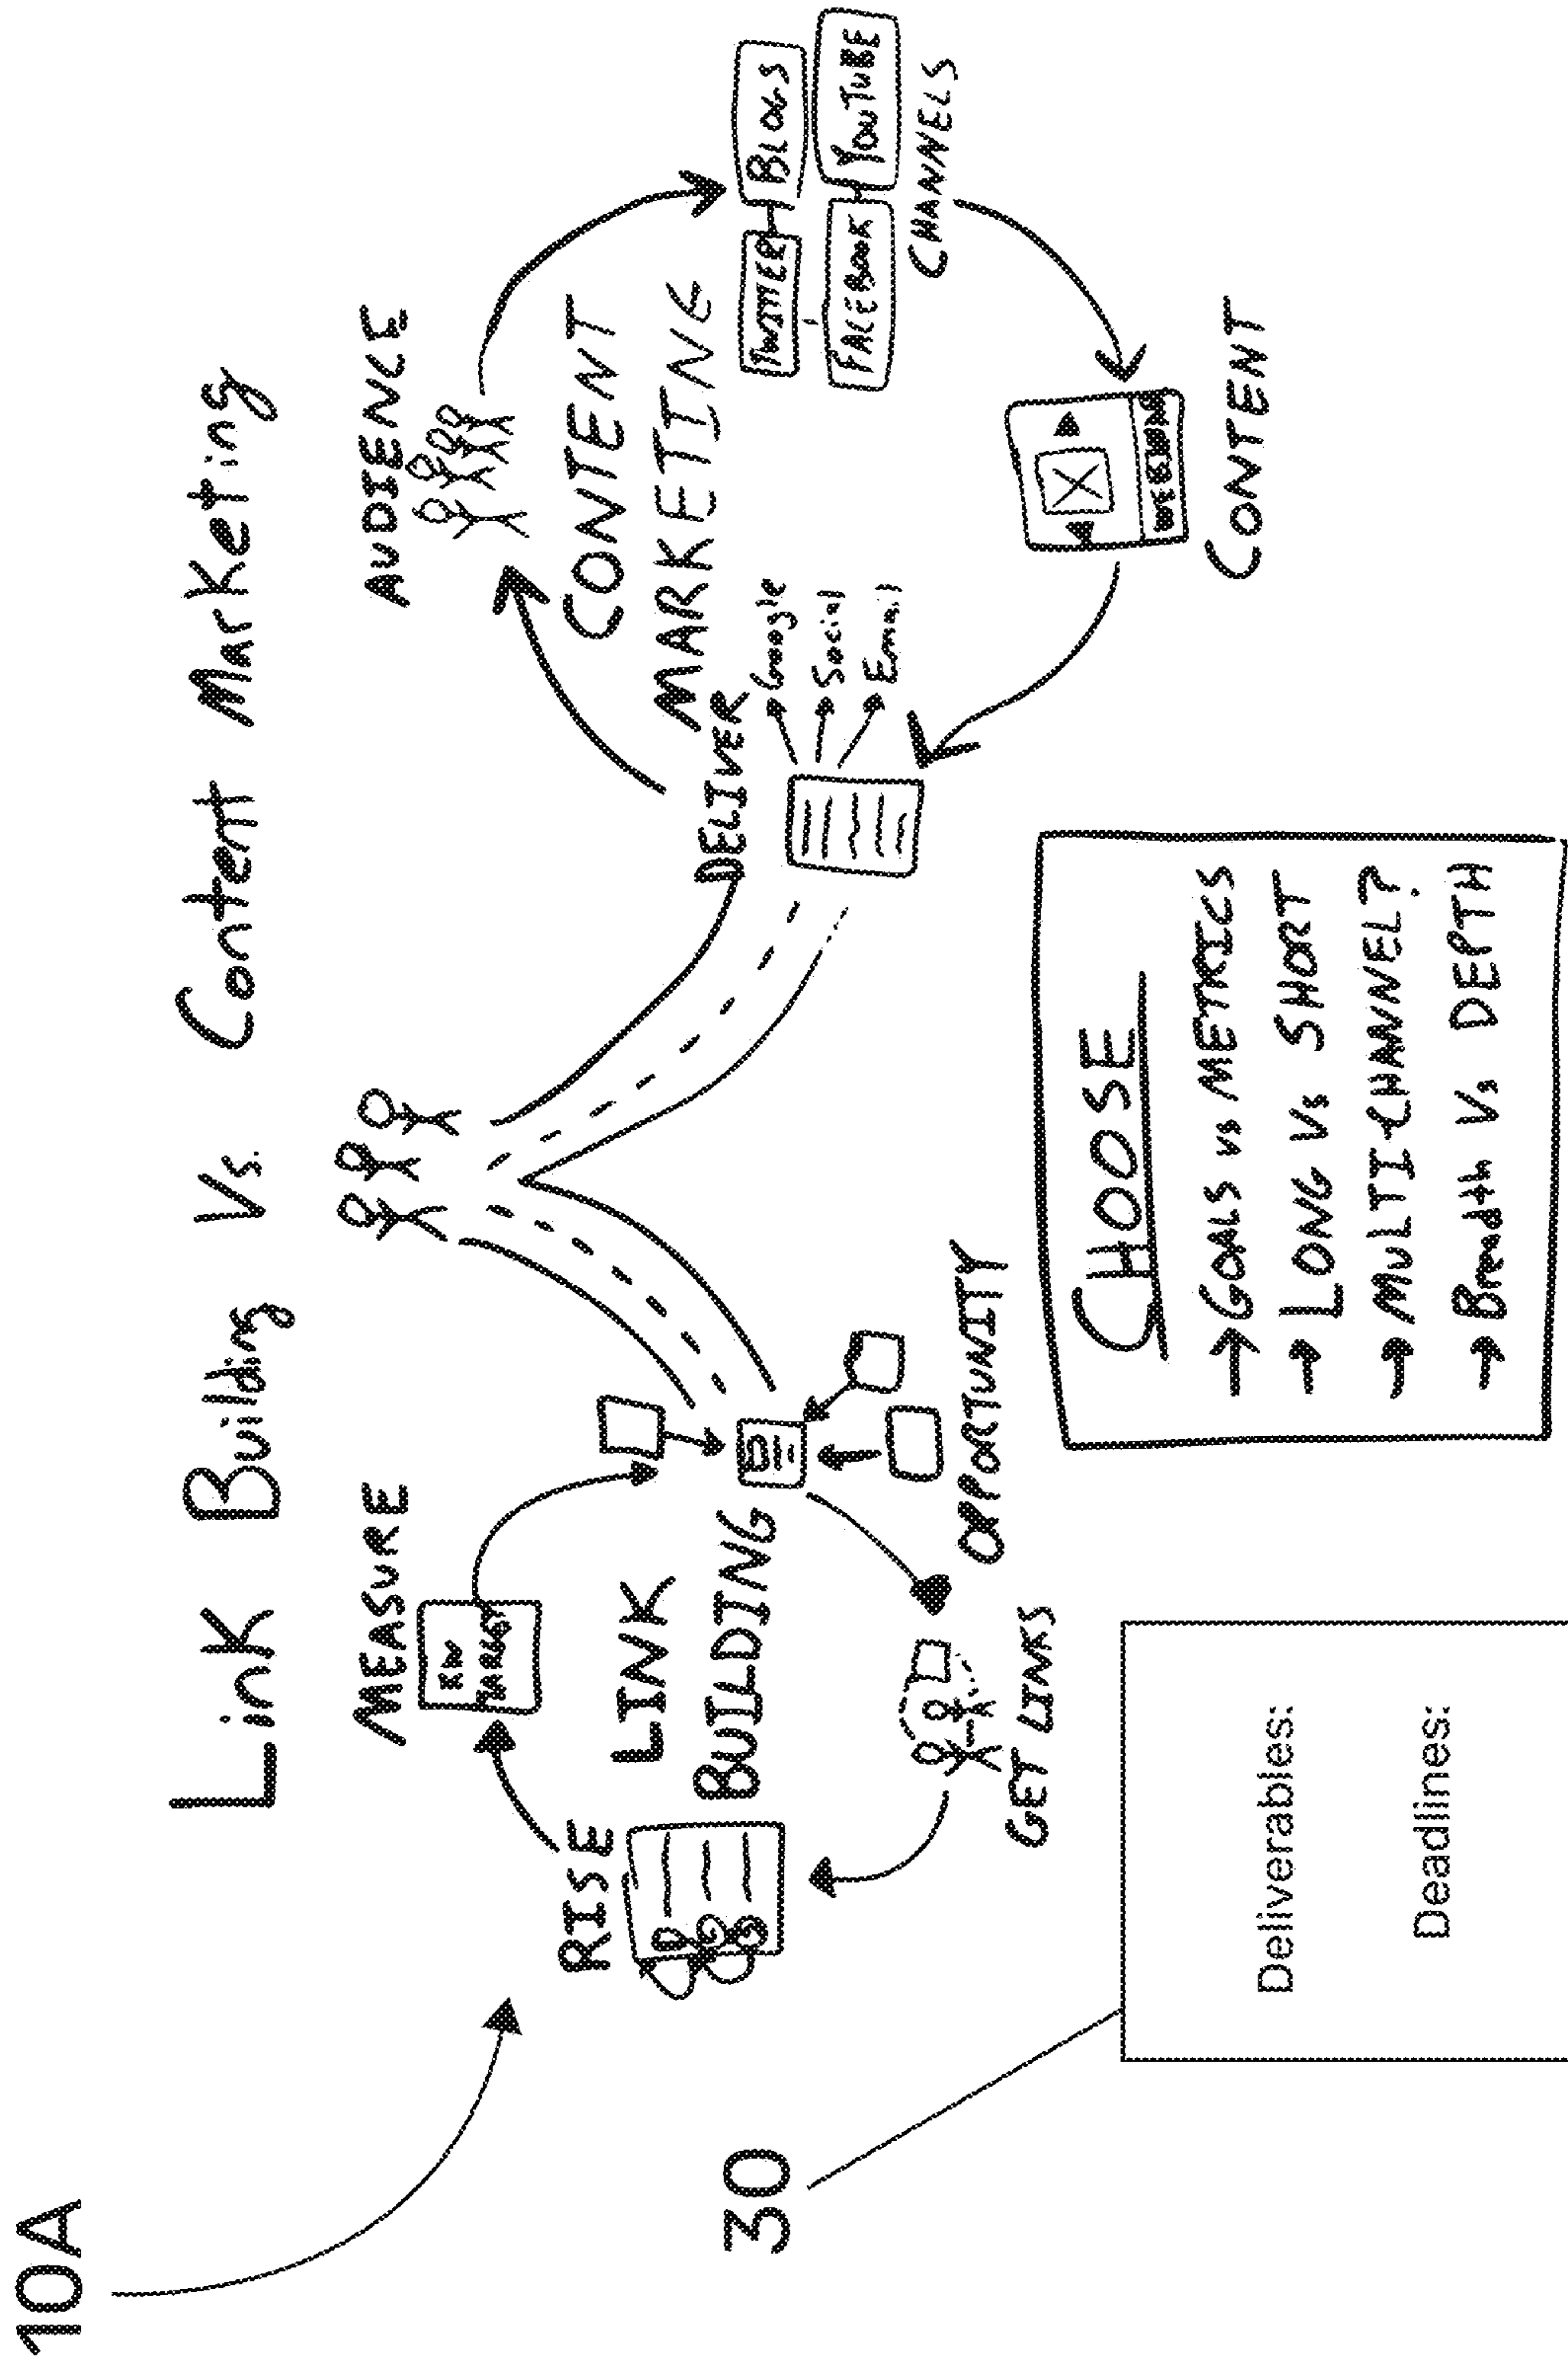 10A
Link Building Vs. Content Marketing
MEASURE
KW
TARGET
RISE
LINK
BUILDING
OPPORTUNITY
GET LINKS
AUDIENCE
CONTENT
MARKETING
DELIVER
Google
Social
Email
TWITTER
BLOGS
FACEBOOK
YOUTUBE
CHANNELS
CONTENT
CHOOSE
→ GOALS vs METRICS
→ LONG Vs SHORT
→ MULTI-CHANNEL?
→ Breadth Vs DEPTH
30
Deliverables:
Deadlines: